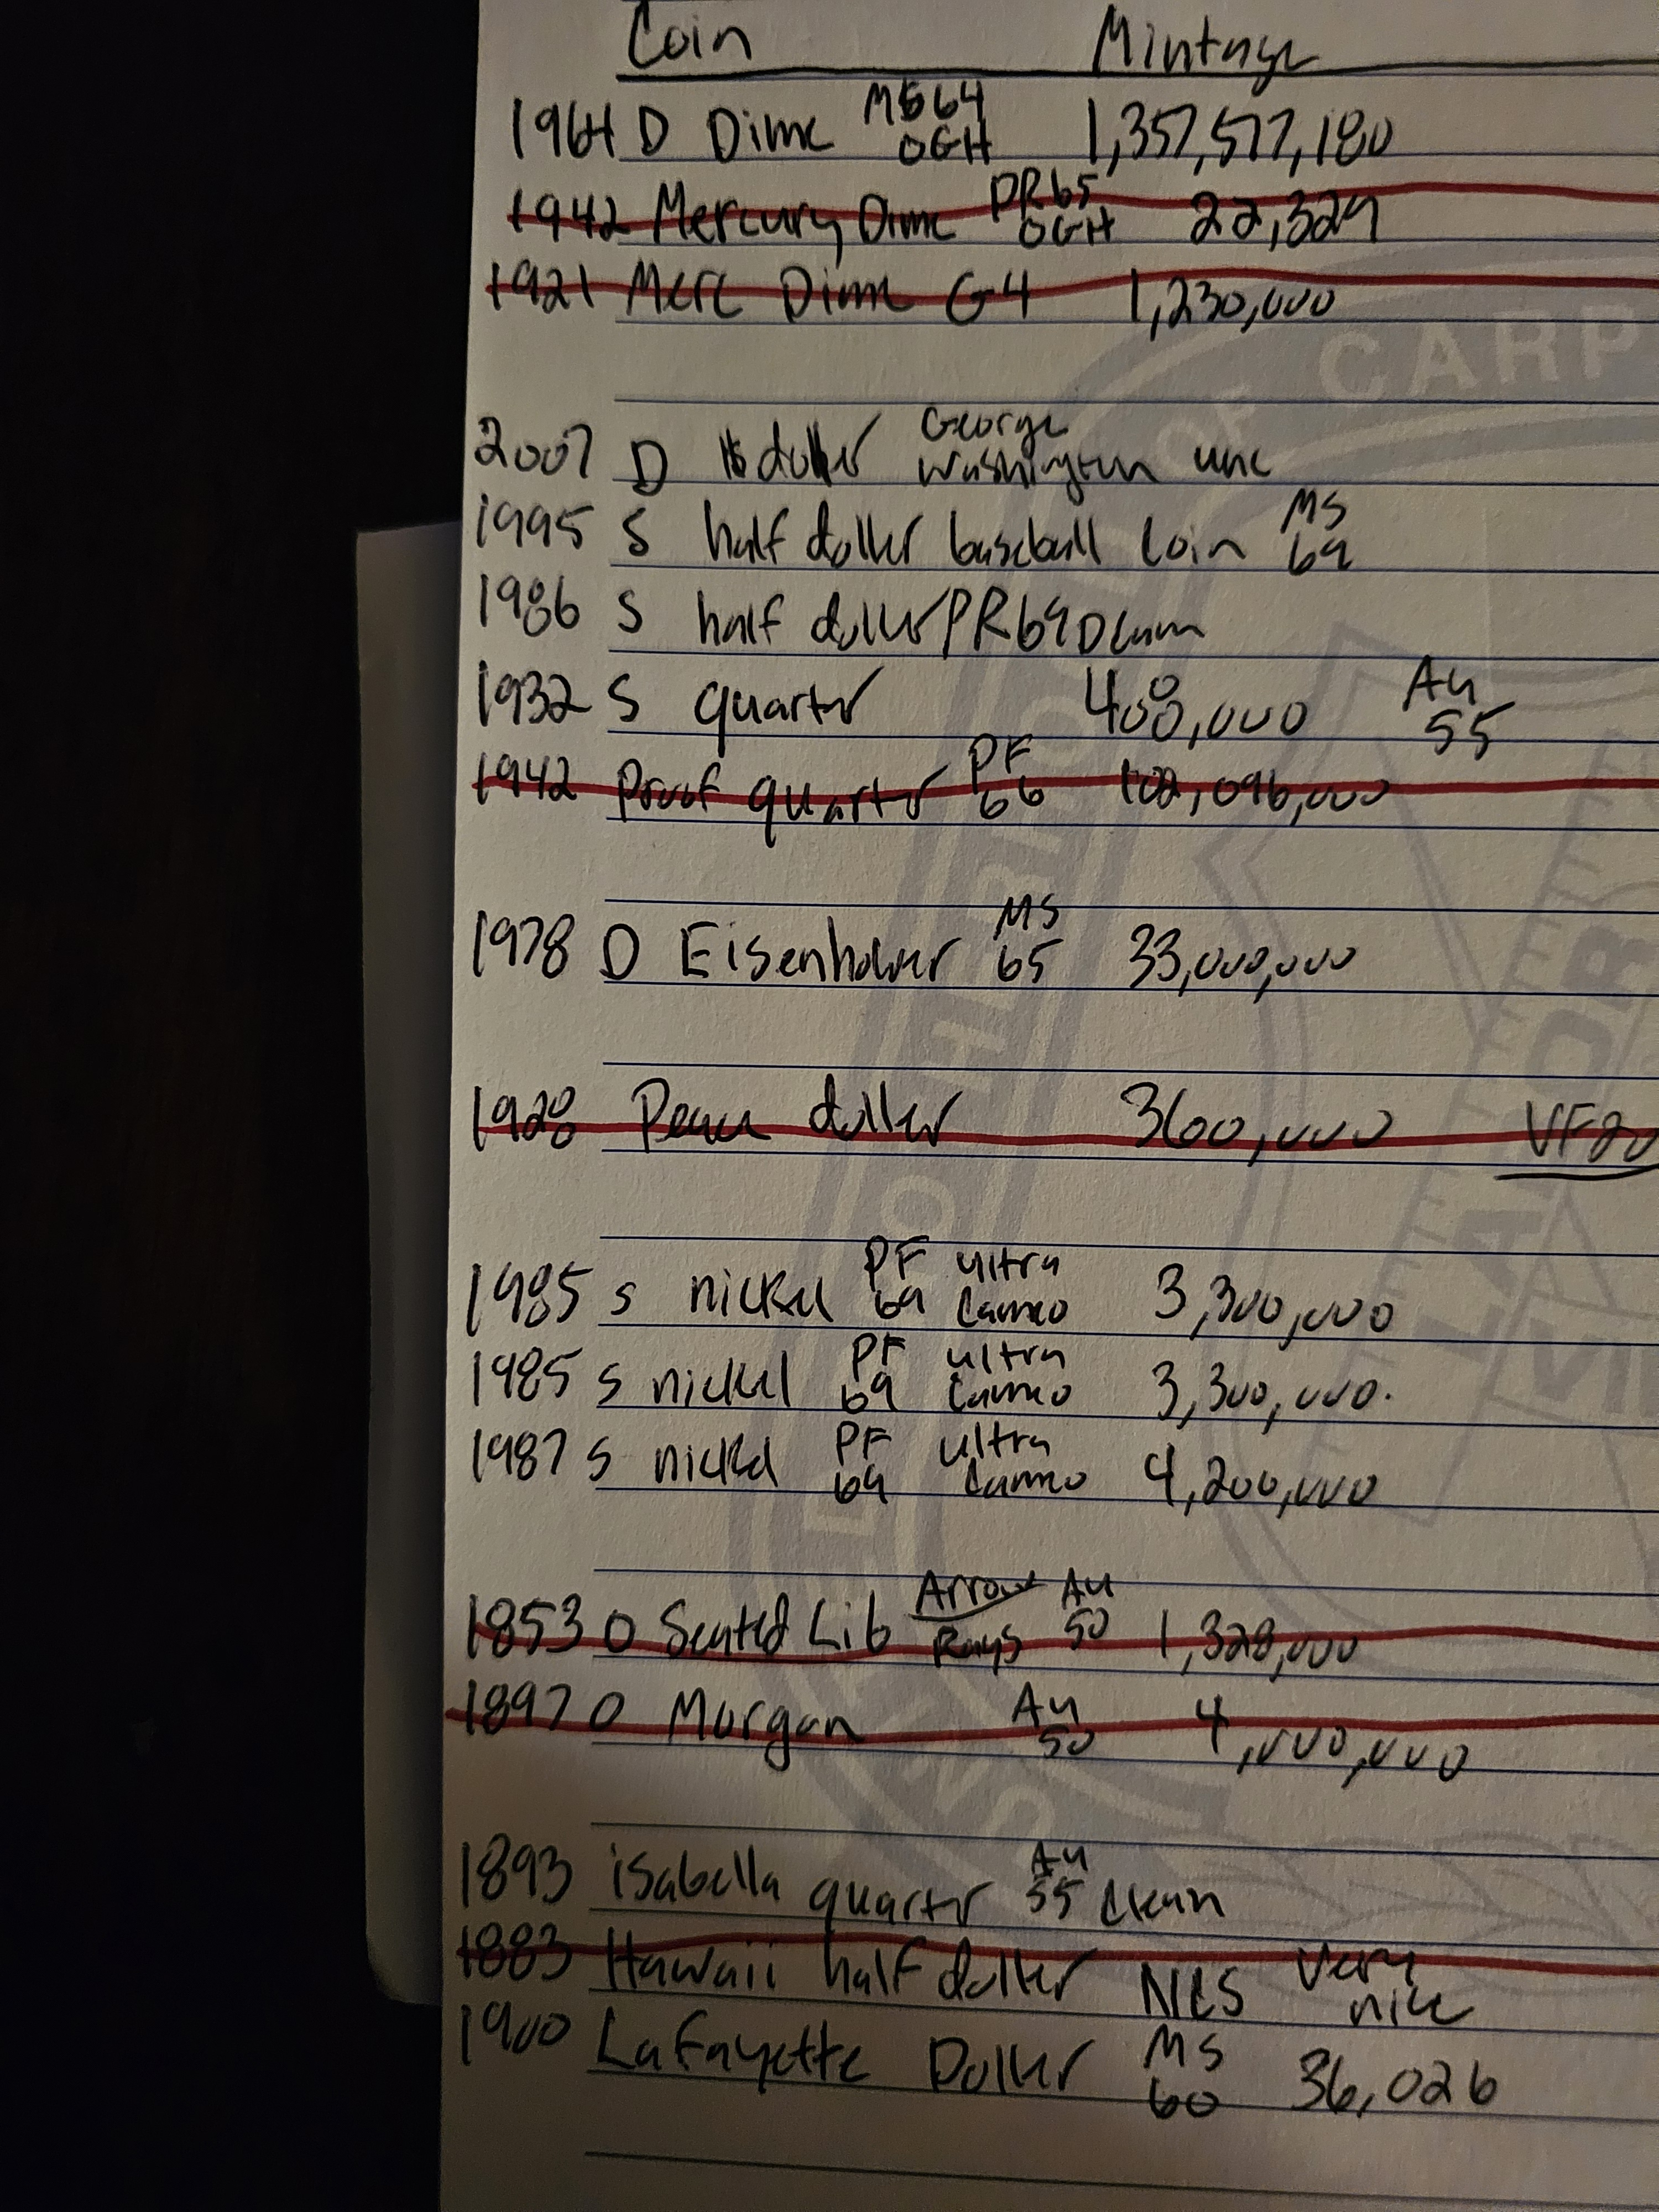 Coin Mintage
1964 D Dime MS64 OGH 1,357,517,180
1942 Mercury Dime PR65 OGH 22,329
1921 Merc Dime G4 1,230,000
CARP
2007 D doller George Washington unc
1995 S half doller baseball coin MS 69
1986 S half doller PR69Dcam
1932 S quarter 408,000 Au 55
1942 Proof quarter PF 66 102,096,000
1978 D Eisenhower MS 65 33,000,000
1928 Peace doller 360,000 VF20
1985 s nickel PF 69 ultra cameo 3,300,000
1985 s nickel PF 69 ultra cameo 3,300,000.
1987 s nickel PF 69 ultra cameo 4,200,000
1853 O Seated Lib Arrows Rays Au 50 1,328,000
1897 O Morgan Au 50 4,000,000
1893 isabella quarter Au 55 clean
1883 Hawaii half doller NCS Very nice
1900 LaFayette Doller MS 60 36,026